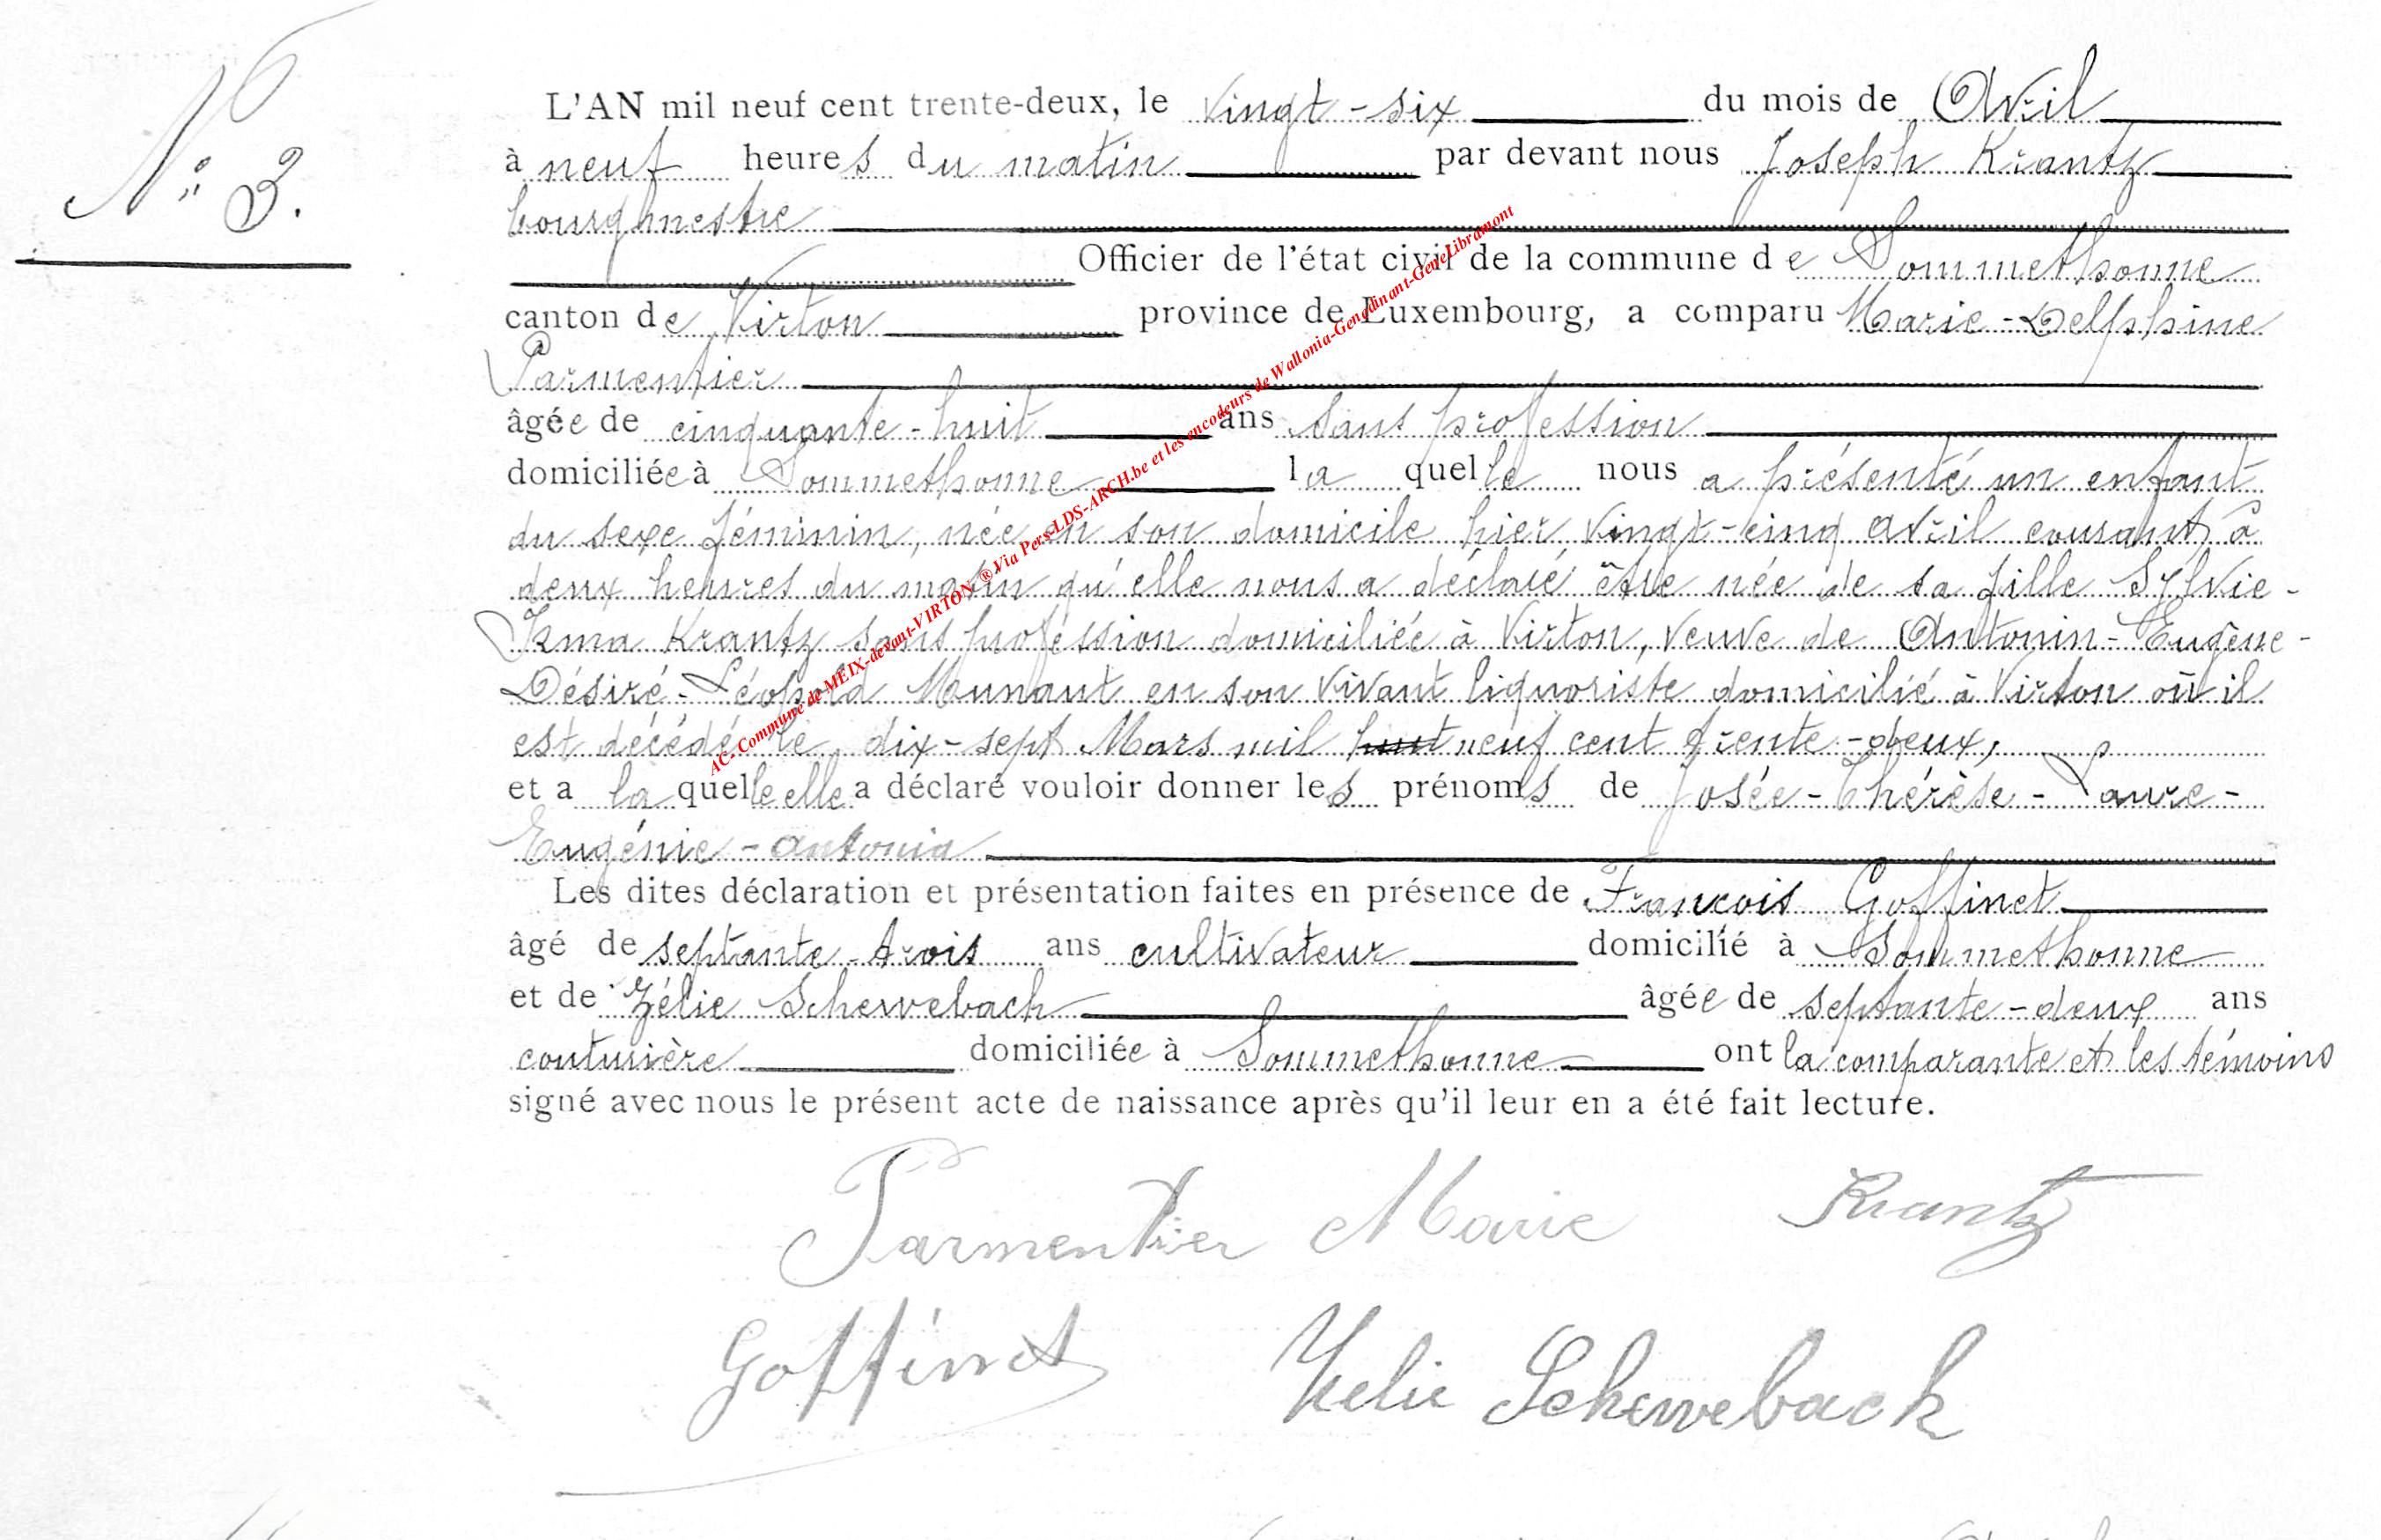 N° 3.
L'AN mil neuf cent trente-deux, le vingt-six du mois de Avril
à neuf heures du matin par devant nous Joseph Krantz
bourgmestre
Officier de l'état civil de la commune de Sommethonne
canton de Virton province de Luxembourg, a comparu Marie-Delphine
Parmentier
âgée de cinquante-huit ans sans profession
domiciliée à Sommethonne laquelle nous a présenté un enfant
du sexe féminin, née en son domicile hier vingt-cinq avril courant à
deux heures du matin qu'elle nous a déclaré être née de sa fille Sylvie-
Irma Krantz sans profession domiciliée à Virton, veuve de Antonin-Eugène-
Désiré-Léopold Maunaut en son vivant liquoriste domicilié à Virton où il
est décédé le dix-sept Mars mil huit neuf cent trente-deux,
et a laquelle elle a déclaré vouloir donner les prénoms de Josée-Thérèse-Laure-
Eugénie-Antonia
Les dites déclaration et présentation faites en présence de François Goffinet
âgé de septante-trois ans cultivateur domicilié à Sommethonne
et de Zélie Schewebach âgée de septante-deux ans
couturière domiciliée à Sommethonne ont la comparante et les témoins
signé avec nous le présent acte de naissance après qu'il leur en a été fait lecture.
Parmentier Marie Krantz
Goffinet Zelie Schewebach
AC-Commune de MEIX-devant-VIRTON ® Via Pers-LDS-ARCH.be et les encodeurs de Wallonia-Genedinant-GeneLibramont